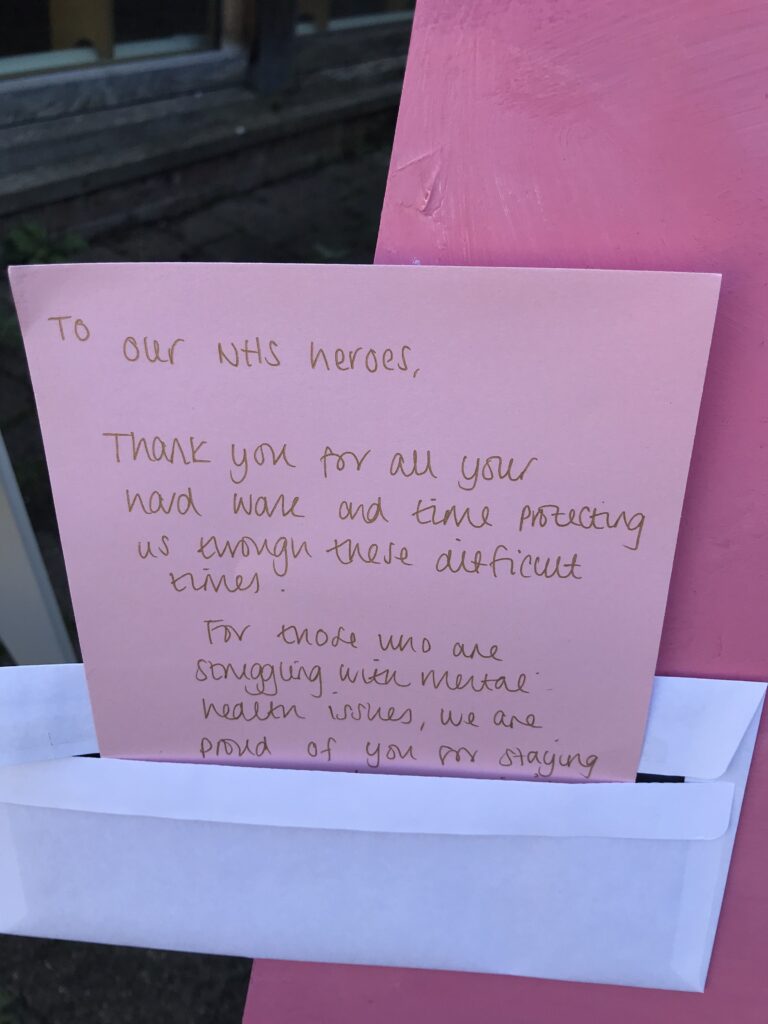 To our NHS heroes,
Thank you for all your
hard work and time protecting
us through these difficult
times.
For those who are
struggling with mental
health issues, we are
proud of you for staying